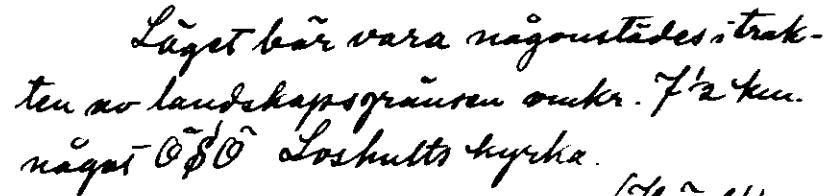 Läget bör vara någonstädes i trak-
ten av landskapsgränsen omkr. 7½ km.
något ÖSÖ Loshults kyrka.